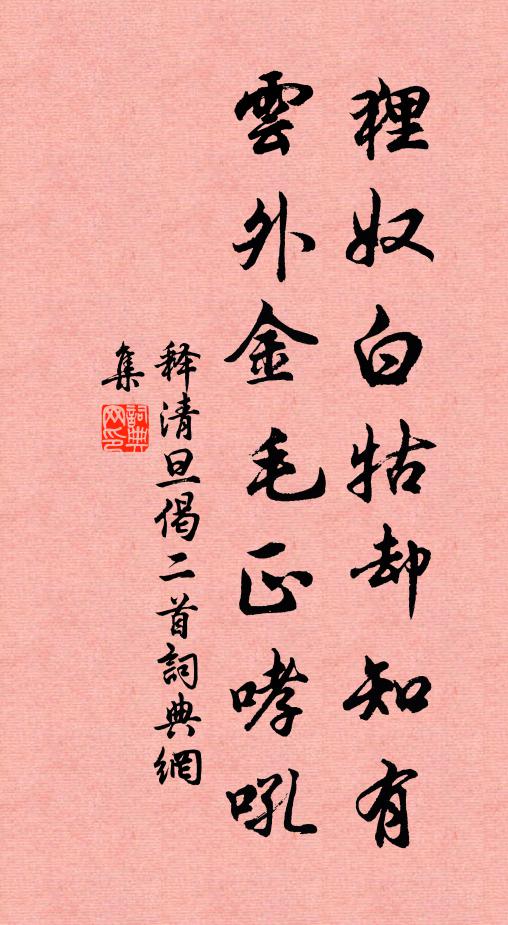 裡奴白牯却知有
雲外金毛正哮吼
释清旦偈二首詞典網
集
詞典
网印